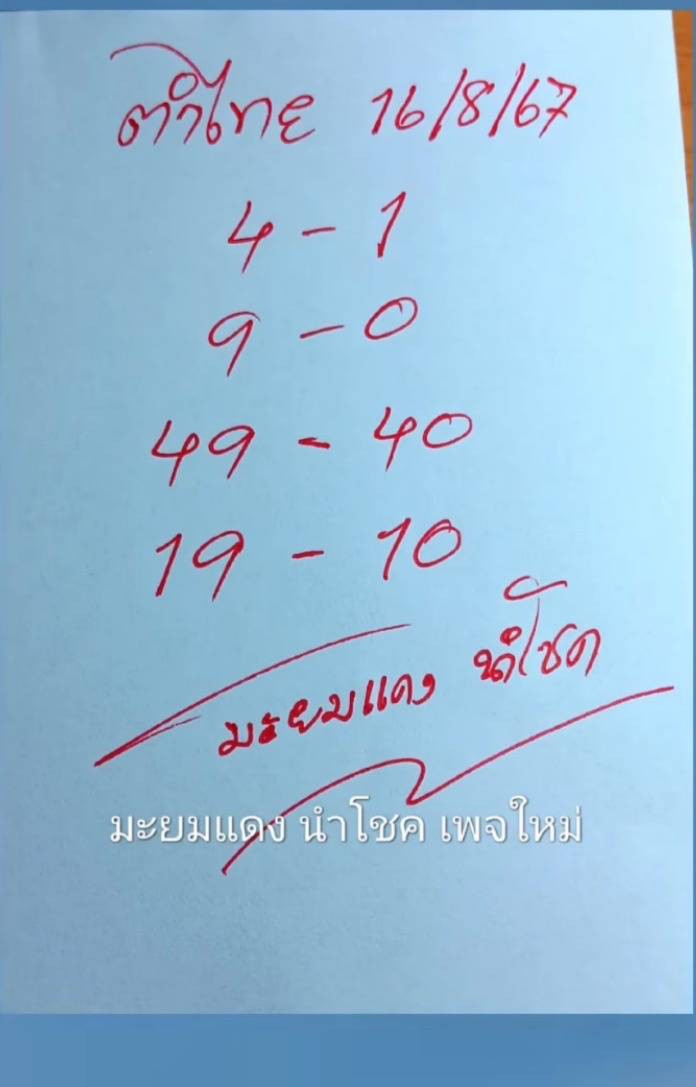 ตำไทย 16/8/67
4 - 1
9 - 0
49 - 40
19 - 10
มะยมแดง นำโชค
มะยมแดง นำโชค เพจใหม่